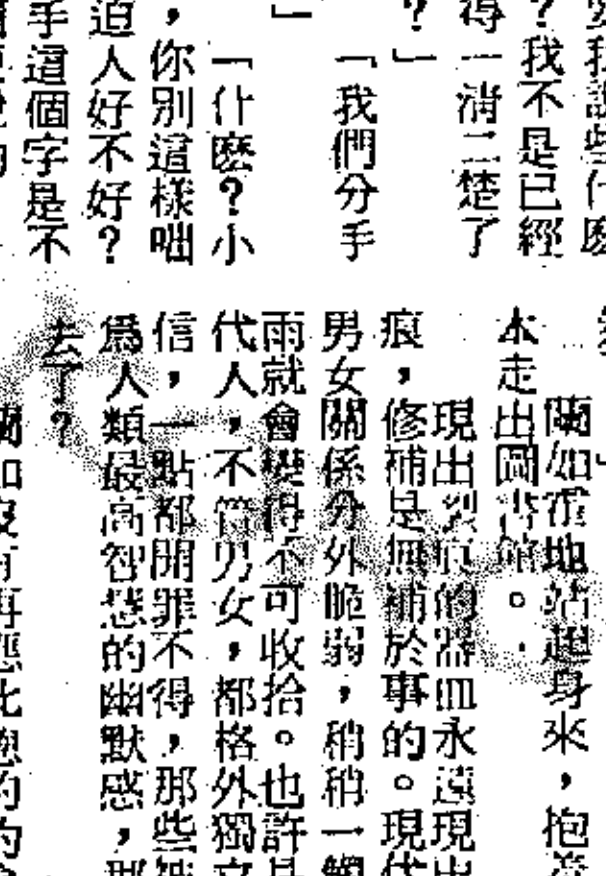 我說些什麼
？我不是已經
得一清二楚了
？」
「我們分手
」
「什麼？小
，你別這樣咄
迫人好不好？
手這個字是不
蘭如霍地站起身來，抱
走出圖書館。
現出裂痕的器皿永遠現出
痕，修補是無補於事的。現代
男女關係分外脆弱，稍稍一觸
雨就會變得不可收拾。也許是
代人，不管男女，都格外獨立
信，一點都開罪不得，那些被
爲人類最高智慧的幽默感，那
去了？
蘭如沒有再